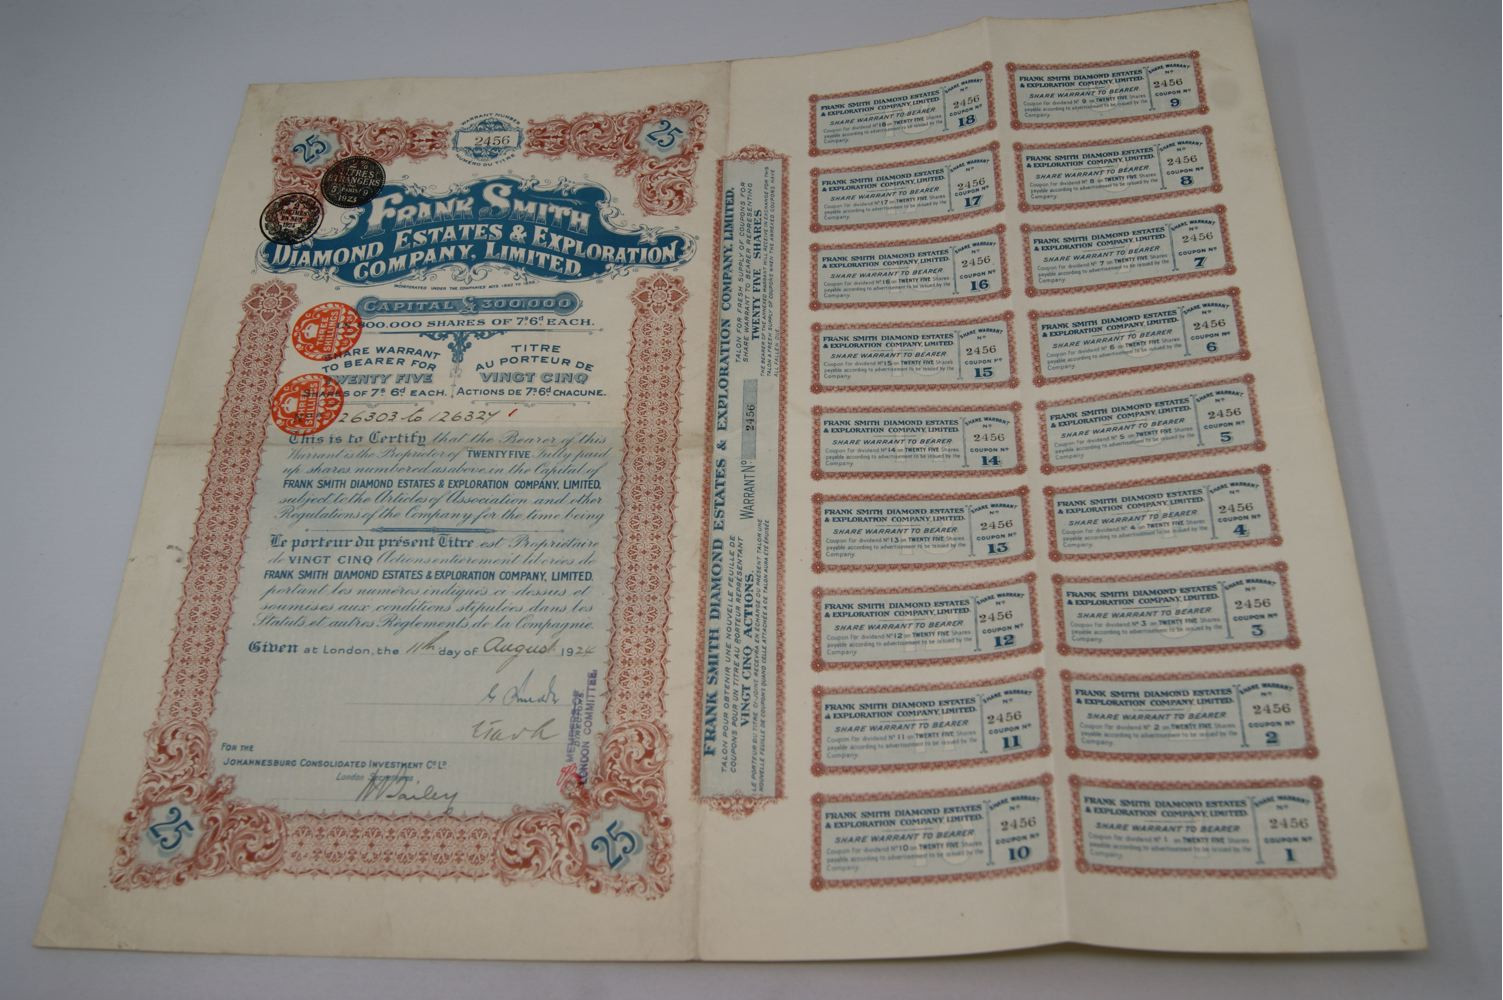 25
WARRANT NUMBER
2456
NUMÉRO DU TITRE
25
TITRES
ÉTRANGERS
PARIS
1923
FRANK SMITH
DIAMOND ESTATES & EXPLORATION
COMPANY, LIMITED.
INCORPORATED UNDER THE COMPANIES ACTS
CAPITAL £300,000
800,000 SHARES OF 7s 6d EACH.
THREE
SHILLINGS
SHARE WARRANT
TO BEARER FOR
TWENTY FIVE
SHARES OF 7s 6d EACH.
TITRE
AU PORTEUR DE
VINGT CINQ
ACTIONS DE 7s 6d CHACUNE.
THREE
SHILLINGS
26303 to 126327
This is to Certify that the Bearer of this
Warrant is the Proprietor of TWENTY FIVE fully paid
up shares numbered as above in the Capital of
FRANK SMITH DIAMOND ESTATES & EXPLORATION COMPANY, LIMITED,
subject to the Articles of Association and other
Regulations of the Company for the time being
Le porteur du présent Titre est Propriétaire
de VINGT CINQ Actions entièrement libérées de
FRANK SMITH DIAMOND ESTATES & EXPLORATION COMPANY, LIMITED.
portant les numéros indiqués ci-dessus et
soumises aux conditions stipulées dans les
Statuts et autres Règlements de la Compagnie.
Given at London, the 11th day of August 1924
MEMBERS OF
LONDON COMMITTEE.
FOR THE
JOHANNESBURG CONSOLIDATED INVESTMENT Co Ld
London Secretaries,
25
25
FRANK SMITH DIAMOND ESTATES & EXPLORATION COMPANY, LIMITED.
TALON POUR OBTENIR UNE NOUVELLE FEUILLE DE
COUPONS POUR UN TITRE AU PORTEUR REPRÉSENTANT
VINGT CINQ ACTIONS.
WARRANT No 2456
TALON FOR FRESH SUPPLY OF COUPONS FOR
SHARE WARRANT TO BEARER REPRESENTING
TWENTY FIVE SHARES
FRANK SMITH DIAMOND ESTATES
& EXPLORATION COMPANY, LIMITED.
SHARE WARRANT TO BEARER
Coupon for dividend No 18 on TWENTY FIVE Shares
payable according to advertisement to be issued by the
Company.
SHARE WARRANT
No
2456
COUPON No
18
FRANK SMITH DIAMOND ESTATES
& EXPLORATION COMPANY, LIMITED.
SHARE WARRANT TO BEARER
Coupon for dividend No 9 on TWENTY FIVE Shares
payable according to advertisement to be issued by the
Company.
SHARE WARRANT
No
2456
COUPON No
9
FRANK SMITH DIAMOND ESTATES
& EXPLORATION COMPANY, LIMITED.
SHARE WARRANT TO BEARER
Coupon for dividend No 17 on TWENTY FIVE Shares
payable according to advertisement to be issued by the
Company.
SHARE WARRANT
No
2456
COUPON No
17
FRANK SMITH DIAMOND ESTATES
& EXPLORATION COMPANY, LIMITED.
SHARE WARRANT TO BEARER
Coupon for dividend No 8 on TWENTY FIVE Shares
payable according to advertisement to be issued by the
Company.
SHARE WARRANT
No
2456
COUPON No
8
FRANK SMITH DIAMOND ESTATES
& EXPLORATION COMPANY, LIMITED.
SHARE WARRANT TO BEARER
Coupon for dividend No 16 on TWENTY FIVE Shares
payable according to advertisement to be issued by the
Company.
SHARE WARRANT
No
2456
COUPON No
16
FRANK SMITH DIAMOND ESTATES
& EXPLORATION COMPANY, LIMITED.
SHARE WARRANT TO BEARER
Coupon for dividend No 7 on TWENTY FIVE Shares
payable according to advertisement to be issued by the
Company.
SHARE WARRANT
No
2456
COUPON No
7
FRANK SMITH DIAMOND ESTATES
& EXPLORATION COMPANY, LIMITED.
SHARE WARRANT TO BEARER
Coupon for dividend No 15 on TWENTY FIVE Shares
payable according to advertisement to be issued by the
Company.
SHARE WARRANT
No
2456
COUPON No
15
FRANK SMITH DIAMOND ESTATES
& EXPLORATION COMPANY, LIMITED.
SHARE WARRANT TO BEARER
Coupon for dividend No 6 on TWENTY FIVE Shares
payable according to advertisement to be issued by the
Company.
SHARE WARRANT
No
2456
COUPON No
6
FRANK SMITH DIAMOND ESTATES
& EXPLORATION COMPANY, LIMITED.
SHARE WARRANT TO BEARER
Coupon for dividend No 14 on TWENTY FIVE Shares
payable according to advertisement to be issued by the
Company.
SHARE WARRANT
No
2456
COUPON No
14
FRANK SMITH DIAMOND ESTATES
& EXPLORATION COMPANY, LIMITED.
SHARE WARRANT TO BEARER
Coupon for dividend No 5 on TWENTY FIVE Shares
payable according to advertisement to be issued by the
Company.
SHARE WARRANT
No
2456
COUPON No
5
FRANK SMITH DIAMOND ESTATES
& EXPLORATION COMPANY, LIMITED.
SHARE WARRANT TO BEARER
Coupon for dividend No 13 on TWENTY FIVE Shares
payable according to advertisement to be issued by the
Company.
SHARE WARRANT
No
2456
COUPON No
13
FRANK SMITH DIAMOND ESTATES
& EXPLORATION COMPANY, LIMITED.
SHARE WARRANT TO BEARER
Coupon for dividend No 4 on TWENTY FIVE Shares
payable according to advertisement to be issued by the
Company.
SHARE WARRANT
No
2456
COUPON No
4
FRANK SMITH DIAMOND ESTATES
& EXPLORATION COMPANY, LIMITED.
SHARE WARRANT TO BEARER
Coupon for dividend No 12 on TWENTY FIVE Shares
payable according to advertisement to be issued by the
Company.
SHARE WARRANT
No
2456
COUPON No
12
FRANK SMITH DIAMOND ESTATES
& EXPLORATION COMPANY, LIMITED.
SHARE WARRANT TO BEARER
Coupon for dividend No 3 on TWENTY FIVE Shares
payable according to advertisement to be issued by the
Company.
SHARE WARRANT
No
2456
COUPON No
3
FRANK SMITH DIAMOND ESTATES
& EXPLORATION COMPANY, LIMITED.
SHARE WARRANT TO BEARER
Coupon for dividend No 11 on TWENTY FIVE Shares
payable according to advertisement to be issued by the
Company.
SHARE WARRANT
No
2456
COUPON No
11
FRANK SMITH DIAMOND ESTATES
& EXPLORATION COMPANY, LIMITED.
SHARE WARRANT TO BEARER
Coupon for dividend No 2 on TWENTY FIVE Shares
payable according to advertisement to be issued by the
Company.
SHARE WARRANT
No
2456
COUPON No
2
FRANK SMITH DIAMOND ESTATES
& EXPLORATION COMPANY, LIMITED.
SHARE WARRANT TO BEARER
Coupon for dividend No 10 on TWENTY FIVE Shares
payable according to advertisement to be issued by the
Company.
SHARE WARRANT
No
2456
COUPON No
10
FRANK SMITH DIAMOND ESTATES
& EXPLORATION COMPANY, LIMITED.
SHARE WARRANT TO BEARER
Coupon for dividend No 1 on TWENTY FIVE Shares
payable according to advertisement to be issued by the
Company.
SHARE WARRANT
No
2456
COUPON No
1